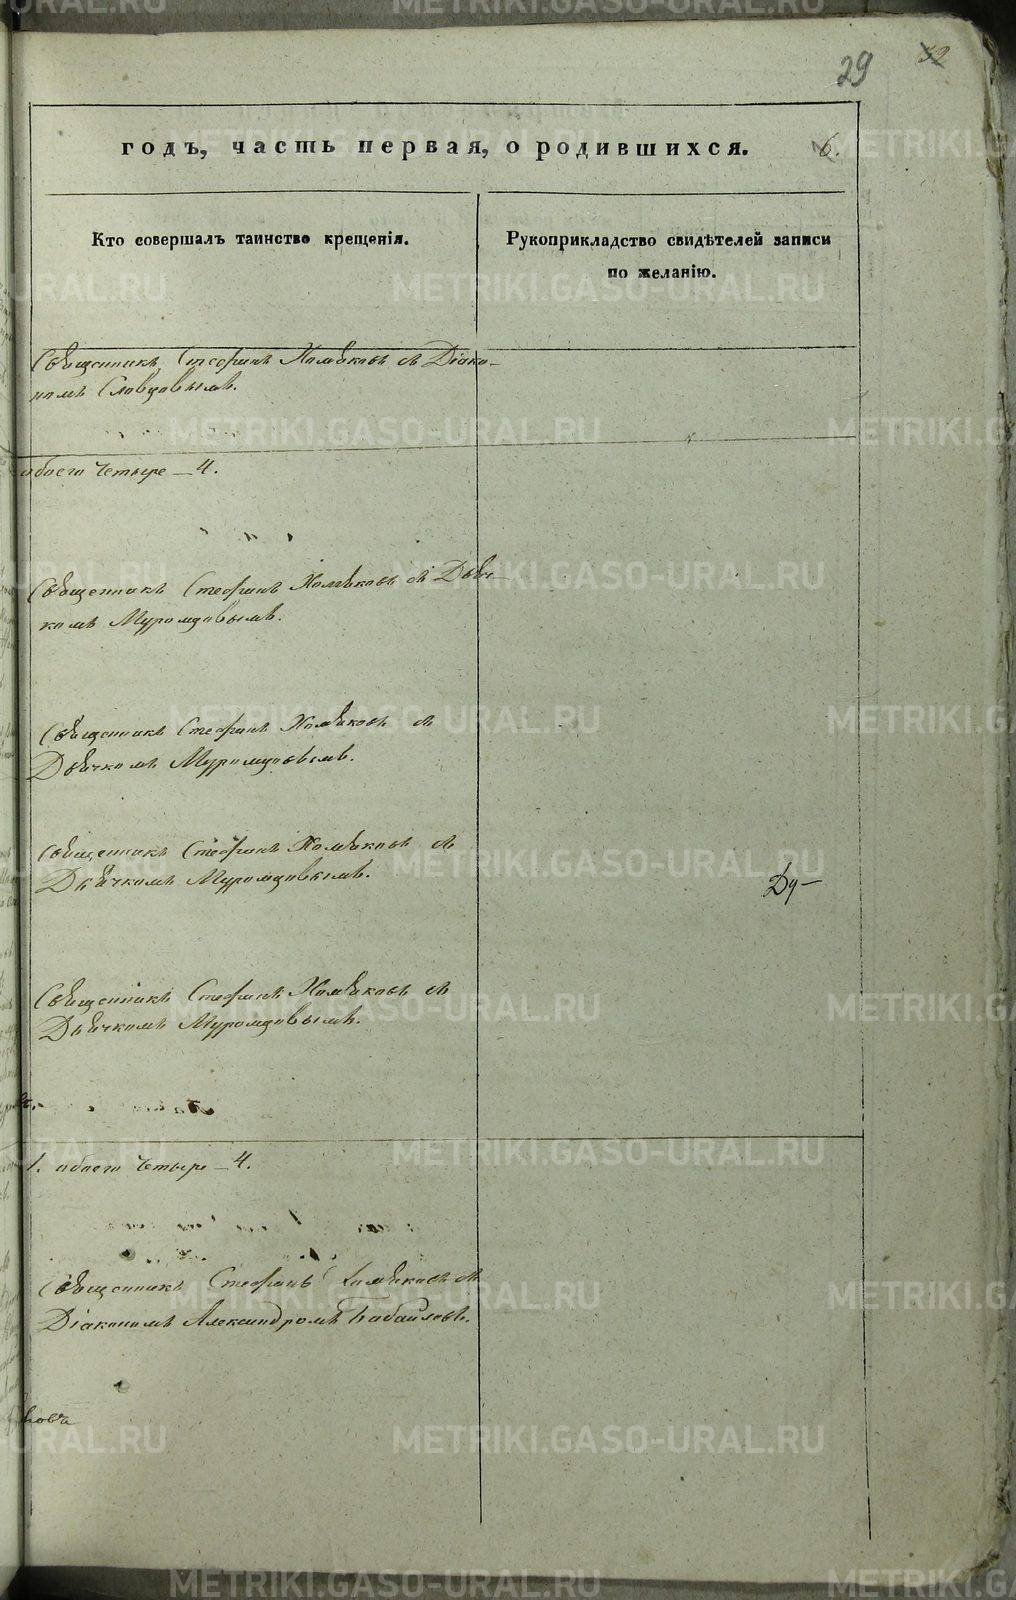 29 52
годъ, часть первая, о родившихся. 6.
Кто совершалъ таинство крещенія.
Рукоприкладство свидѣтелей записи
по желанію.
Священникъ Стефанъ Хомяковъ съ Діако-
номъ Словцовымъ.
обоего Четыре — 4.
Священникъ Стефанъ Хомяковъ съ Дьяч-
комъ Муромцовымъ.
Священникъ Стефанъ Хомяковъ съ
Дьячкомъ Муромцовымъ.
Священникъ Стефанъ Хомяковъ съ
Дьячкомъ Муромцовымъ.
Священникъ Стефанъ Хомяковъ съ
Дьячкомъ Муромцовымъ.
1. обоего Четыре — 4.
Священникъ Стефанъ Хомяковъ съ
Діакономъ Александромъ Бабайловъ.
METRIKI.GASO-URAL.RU